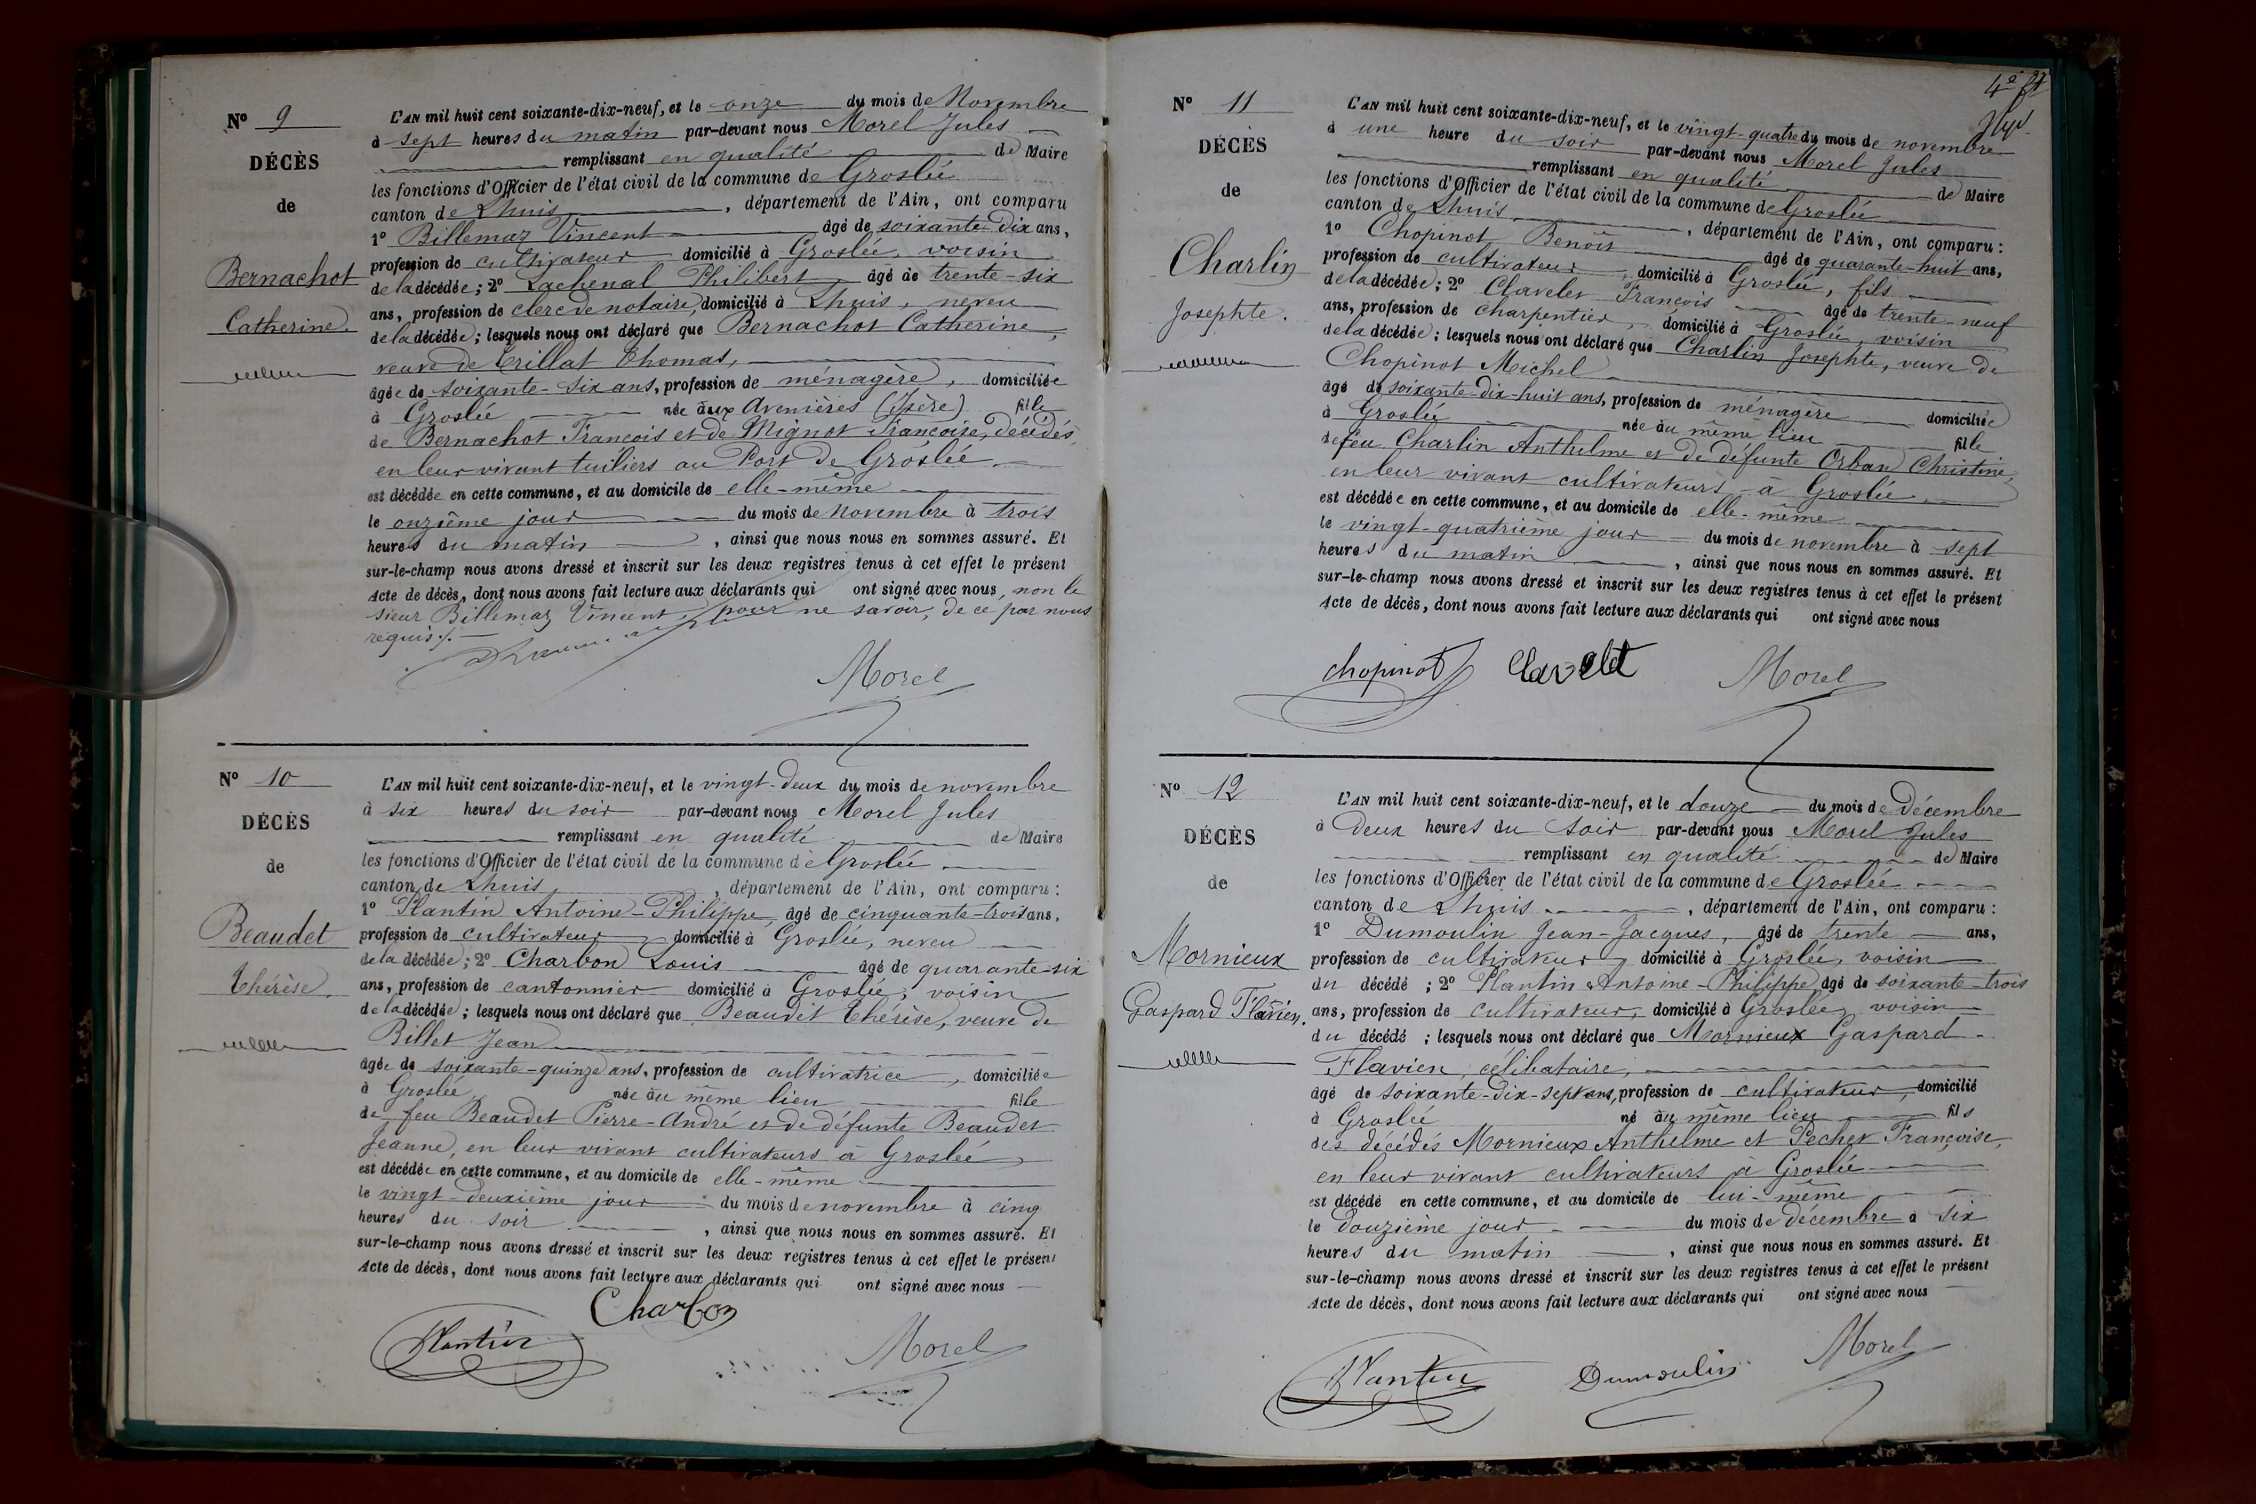 N° 9
DÉCÈS
de
Bernachot
Catherine.
L'AN mil huit cent soixante-dix-neuf, et le onze du mois de Novembre
à sept heures du matin par-devant nous Morel Jules
remplissant en qualité de Maire
les fonctions d'Officier de l'état civil de la commune de Groslée
canton de Lhuis, département de l'Ain, ont comparu
1° Billemaz Vincent âgé de soixante-dix ans,
profession de cultivateur domicilié à Groslée, voisin
de la décédée; 2° Lachenal Philibert âgé de trente-six
ans, profession de clerc de notaire, domicilié à Lhuis, neveu
de la décédée; lesquels nous ont déclaré que Bernachot Catherine,
veuve de Trillat Thomas,
âgée de soixante-six ans, profession de ménagère, domiciliée
à Groslée née aux Avenières (Isère) fille
de Bernachot François et de Mignot Françoise, décédés,
en leur vivant tuiliers au Port de Groslée.
est décédée en cette commune, et au domicile de elle-même
le onzième jour du mois de Novembre à trois
heures du matin, ainsi que nous nous en sommes assuré. Et
sur-le-champ nous avons dressé et inscrit sur les deux registres tenus à cet effet le présent
Acte de décès, dont nous avons fait lecture aux déclarants qui ont signé avec nous, non le
sieur Billemaz Vincent, pour ne savoir, de ce par nous
requis./.
Morel
N° 10
DÉCÈS
de
Beaudet
Thérèse.
L'AN mil huit cent soixante-dix-neuf, et le vingt-deux du mois de novembre
à six heures du soir par-devant nous Morel Jules
remplissant en qualité de Maire
les fonctions d'Officier de l'état civil de la commune de Groslée
canton de Lhuis, département de l'Ain, ont comparu:
1° Plantin Antoine-Philippe, âgé de cinquante-trois ans,
profession de cultivateur domicilié à Groslée, neveu
de la décédée; 2° Charbon Louis âgé de quarante-six
ans, profession de cantonnier domicilié à Groslée, voisin
de la décédée; lesquels nous ont déclaré que Beaudet Thérèse, veuve de
Billet Jean
âgée de soixante-quinze ans, profession de cultivatrice, domiciliée
à Groslée née au même lieu fille
de feu Beaudet Pierre-André et de défunte Beaudet
Jeanne, en leur vivant cultivateurs à Groslée
est décédée en cette commune, et au domicile de elle-même
le vingt-deuxième jour du mois de novembre à cinq
heures du soir, ainsi que nous nous en sommes assuré. Et
sur-le-champ nous avons dressé et inscrit sur les deux registres tenus à cet effet le présent
Acte de décès, dont nous avons fait lecture aux déclarants qui ont signé avec nous
Charbon
Plantin
Morel
N° 11
DÉCÈS
de
Charlin
Josephte.
L'AN mil huit cent soixante-dix-neuf, et le vingt-quatre du mois de novembre
à une heure du soir par-devant nous Morel Jules
remplissant en qualité de Maire
les fonctions d'Officier de l'état civil de la commune de Groslée
canton de Lhuis, département de l'Ain, ont comparu:
1° Chopinot Benoît âgé de quarante-huit ans,
profession de cultivateur, domicilié à Groslée, fils
de la décédée; 2° Clavelet François âgé de trente-neuf
ans, profession de charpentier, domicilié à Groslée, voisin
de la décédée; lesquels nous ont déclaré que Charlin Josephte, veuve de
Chopinot Michel
âgé de soixante-dix-huit ans, profession de ménagère domiciliée
à Groslée née au même lieu fille
de feu Charlin Anthelme et de défunte Orban Christine,
en leur vivant cultivateurs à Groslée.
est décédée en cette commune, et au domicile de elle-même
le vingt-quatrième jour du mois de novembre à sept
heures du matin, ainsi que nous nous en sommes assuré. Et
sur-le-champ nous avons dressé et inscrit sur les deux registres tenus à cet effet le présent
Acte de décès, dont nous avons fait lecture aux déclarants qui ont signé avec nous
chopinot Clavelet Morel
N° 12
DÉCÈS
de
Mornieux
Gaspard Flavien.
L'AN mil huit cent soixante-dix-neuf, et le douze du mois de Décembre
à deux heures du soir par-devant nous Morel Jules
remplissant en qualité de Maire
les fonctions d'Officier de l'état civil de la commune de Groslée
canton de Lhuis, département de l'Ain, ont comparu:
1° Dumoulin Jean-Jacques, âgé de trente ans,
profession de cultivateur, domicilié à Groslée, voisin
du décédé; 2° Plantin Antoine-Philippe âgé de soixante-trois
ans, profession de cultivateur, domicilié à Groslée, voisin
du décédé; lesquels nous ont déclaré que Mornieux Gaspard
Flavien, célibataire,
âgé de soixante-dix-sept ans, profession de cultivateur, domicilié
à Groslée né au même lieu fils
des décédés Mornieux Anthelme et Pecher Françoise,
en leur vivant cultivateurs à Groslée
est décédé en cette commune, et au domicile de lui-même
le douzième jour du mois de décembre à six
heures du matin, ainsi que nous nous en sommes assuré. Et
sur-le-champ nous avons dressé et inscrit sur les deux registres tenus à cet effet le présent
Acte de décès, dont nous avons fait lecture aux déclarants qui ont signé avec nous
Plantin Dumoulin Morel